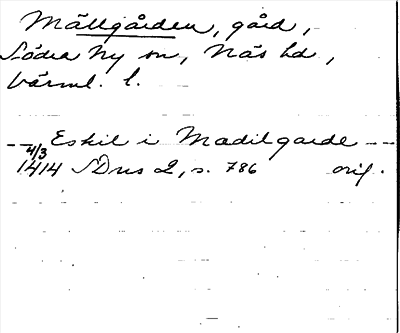 Mällgården, gård,
Södra Ny sn, Näs hd,
Värml. l.
-- Eskil i Madilgarde --
4/3
1414 SDns 2, s. 786 orig.